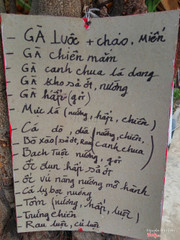 - GÀ luộc + cháo, Miến
GÀ chiên mắm
GÀ canh chua lá dang
GÀ kho sốt, nướng
GÀ hấp (gỏi)
Mực lá (nướng, hấp, chiên)
Cá dò, dìa (nướng, chiên,
Bò xào (sốt, Rau canh chua)
- Bạch Tuộc nướng, gỏi
- Ốc đụn hấp sốt
- Ốc vú nàng nướng mỡ hành
- Cá ly bạc nướng
- Tôm (nướng, hấp, luộc)
- Trứng chiên
- Rau luộc, củ luộc